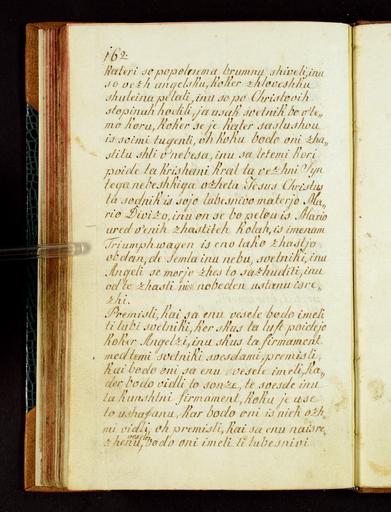 162.
Kateri so popolnema brumnu shiveli, inu
so vezh angelsku, koker zhloveshku
shuleina pelali, inu so po Christovih
stopinah hodili, ja usak svetnik bo v'te-
mo koru, koker se je kater saslushou
is soimi tugenti, oh koku bodo oni zha-
stitu shli v'nebesa, inu sa letemi kori
poide ta krishani kral ta vezhni Syn
tega nebeshkiga ozheta Jesus Christus
ta sodnik is sojo lubesnivo materjo Ma-
rio Divizo, inu on se bo pelou is Mario
ured v'enih zhastitéh kolah, is imenam
Triumphwagen is eno tako zhastjo
obdan, de semla inu nebu, svetniki, inu
Angeli se morjo zhes to sazhuditi, inu
od te zhasti nie nobeden ustanu isre-
zhi.
Premisli, kai sa enu vesele bodo imeli
ti lubi svetniki, ker skus ta luft poidejo
koker Angelzi, inu skus ta firmament
med temi svetniki svesdami, premisli,
kai bodo oni sa enu vesele imeli, ka-
der bodo vidli to sonze, te svesde inu
ta kunshtni firmament, koku je use
to ushafanu, kar bodo oni is nieh ozh-
mi vidli, oh premisli, kai sa enu naisre-
zhenu vesele, bodo oni imeli ti lubesnivi